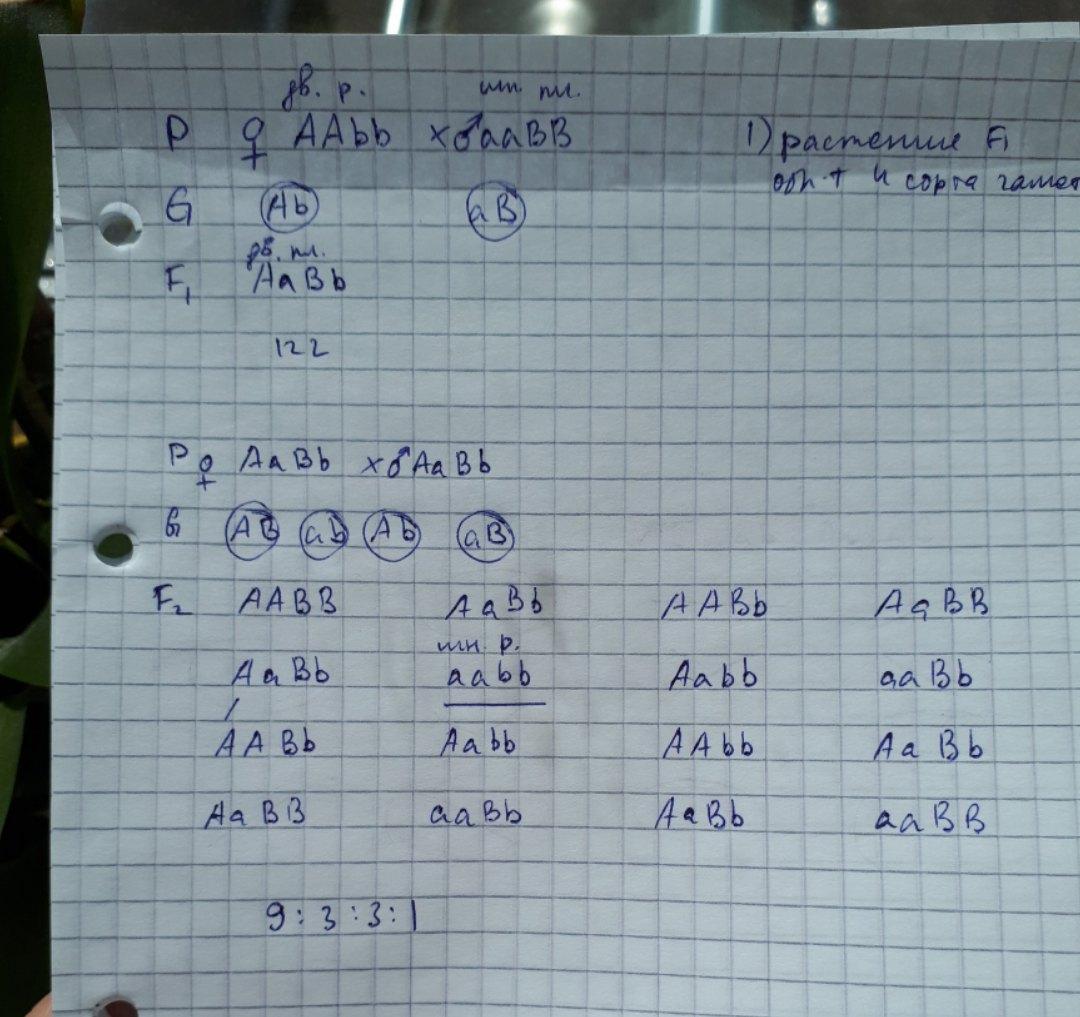 дв. р. мн. пл.
P ♀ AAbb × ♂ aaBB
1) растение F1
G Ab aB
обр-т 4 сорта гамет
дв. пл.
F1 AaBb
122
P ♀ AaBb × ♂ AaBb
G AB ab Ab aB
F2 AABB AaBb AABb AaBB
мн. р.
AaBb aabb Aabb aaBb
AABb Aabb AAbb AaBb
AaBB aaBb AaBb aaBB
9 : 3 : 3 : 1